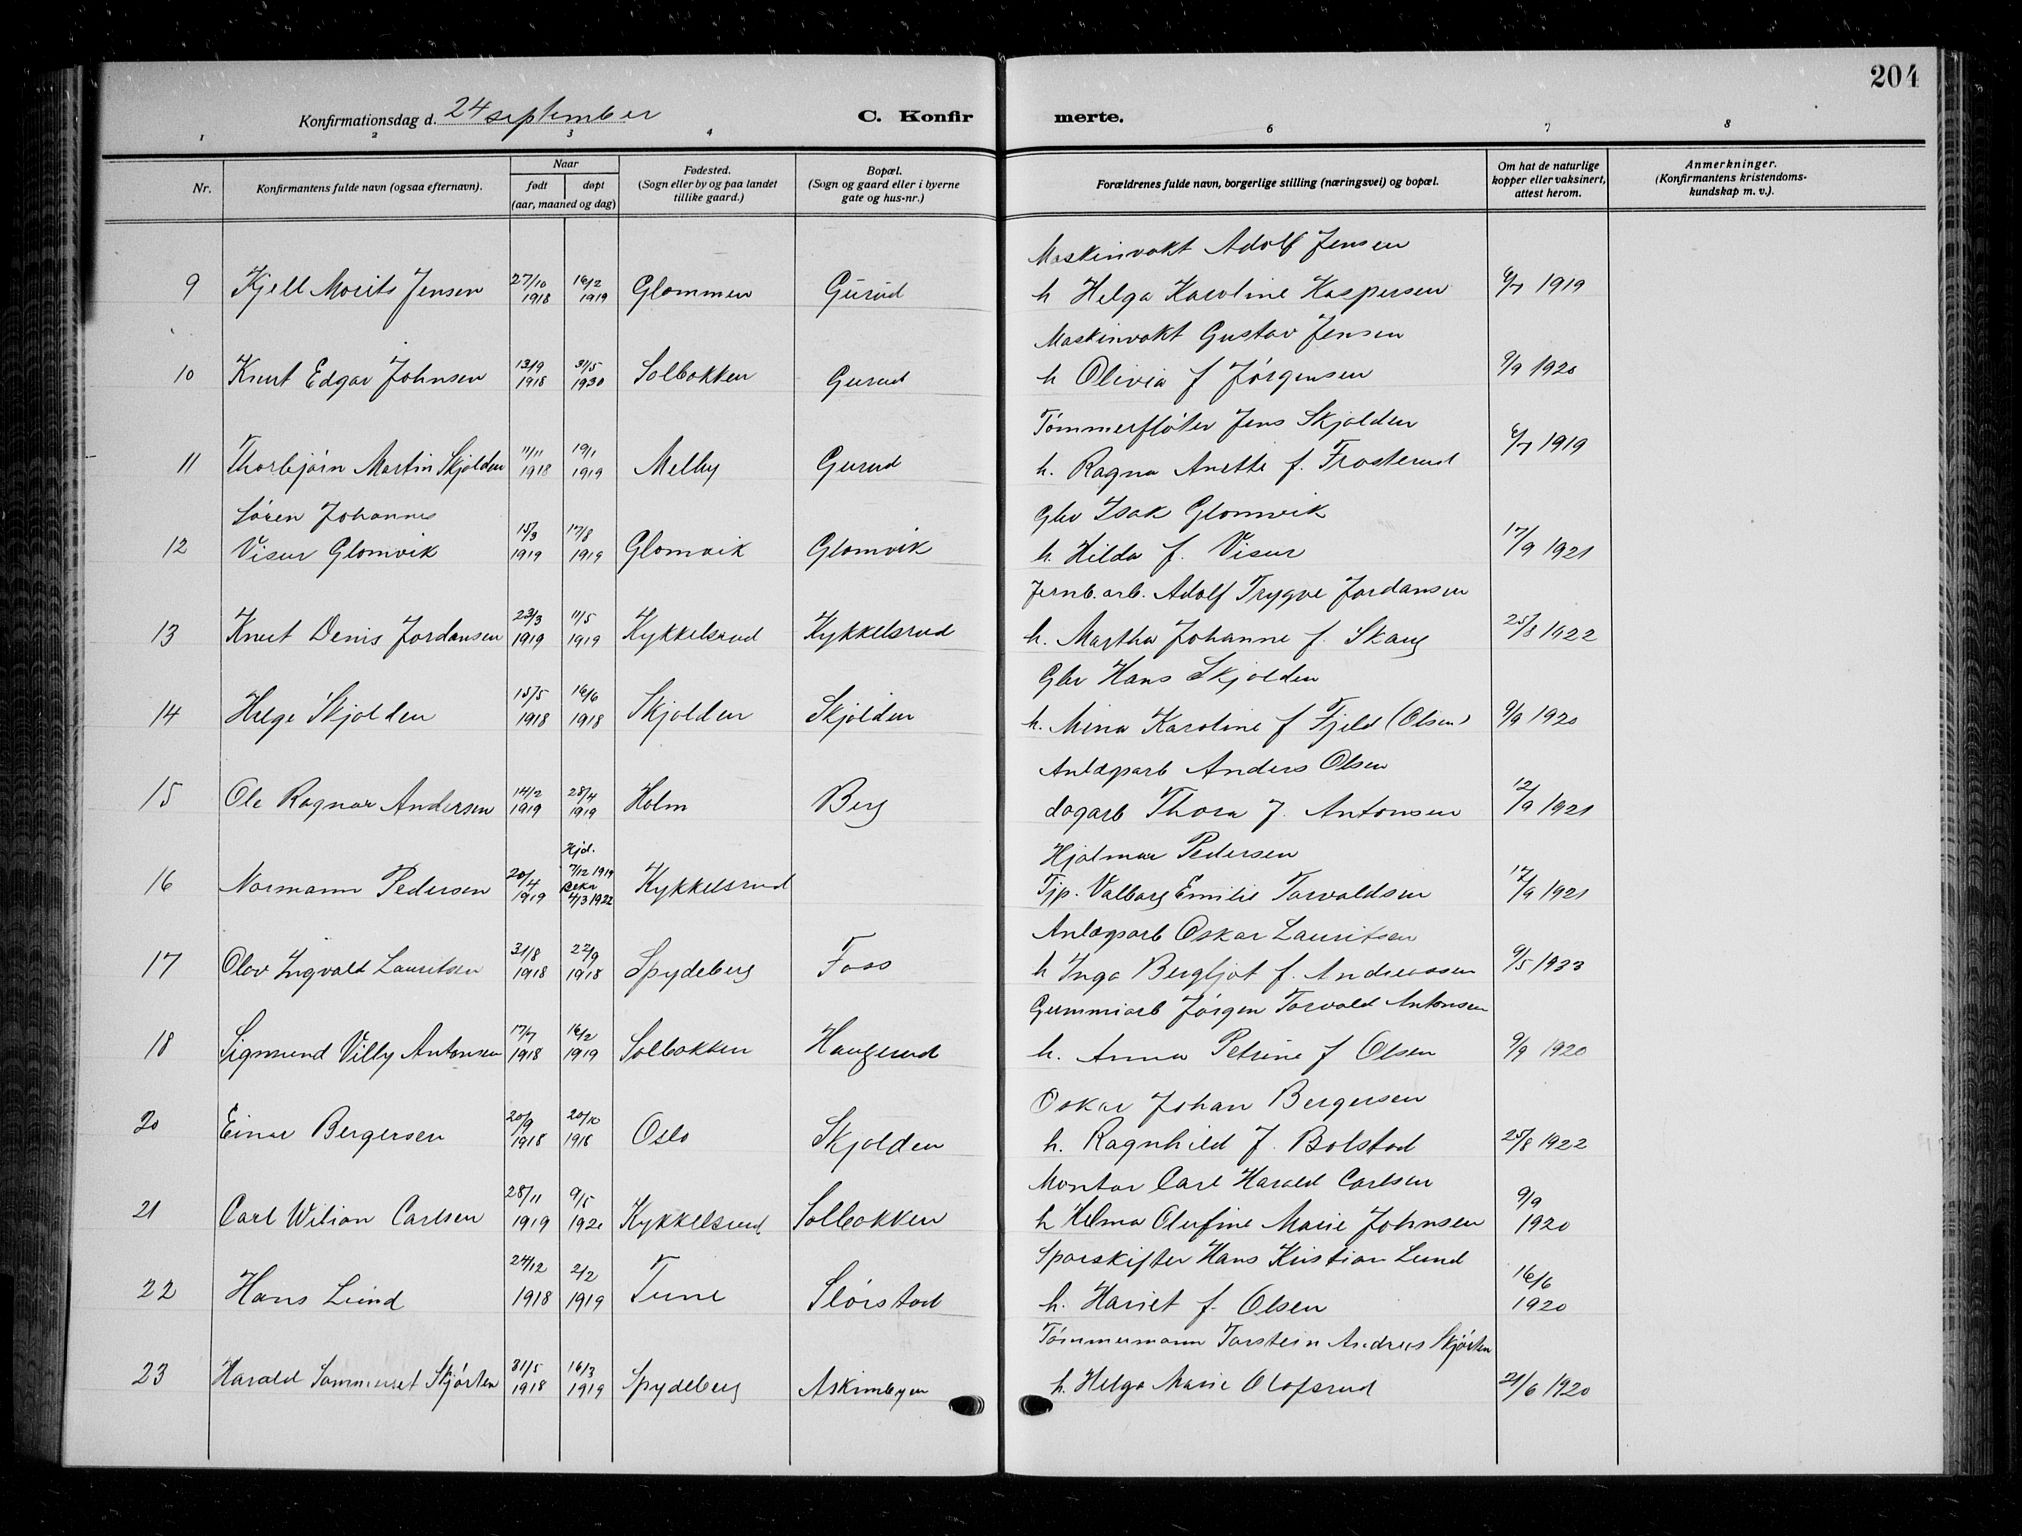 204
Konfirmationsdag d. 24 september C. Konfirmerte.
1 2 3 4 6 7 8
Nr. Konfirmantens fulde navn (ogsaa efternavn). Naar født døpt (aar, maaned og dag) Fødested. (Sogn eller by og paa landet tillike gaard.) Bopæl. (Sogn og gaard eller i byerne gate og hus-nr.) Forældrenes fulde navn, borgerlige stilling (næringsvei) og bopæl. Om hat de naturlige kopper eller vaksinert, attest herom. Anmerkninger. (Konfirmantens kristendomskundskap m. v.).
Maskinvakt Adolf Jensen
9 Kjell Morits Jensen 27/10 1918 16/2 1919 Glommen Gurud h Helga Karoline Kaspersen 6/7 1919
Maskinvakt Gustav Jensen
10 Knut Edgar Johnsen 13/9 1918 31/5 1930 Solbakken Gurud h Olivia f Jørgensen 9/9 1920
Tømmerfløter Jens Skjolden
11 Thorbjørn Martin Skjolden 11/11 1918 19/1 1919 Melby Gurud h. Ragna Anette f. Frosterud 6/7 1919
Søren Johannes Gbr Isak Glomvik
12 Visur Glomvik 15/3 1919 17/8 1919 Glomvik Glomvik h. Hilda f. Visur 17/9 1921
Jernb.arb. Adolf Trygve Jordansen
13 Knut Denis Jordansen 23/3 1919 11/5 1919 Kykkelsrud Kykkelsrud h. Martha Johanne f. Skaug 25/8 1922
Gbr Hans Skjolden
14 Helge Skjolden 15/5 1918 16/6 1918 Skjolden Skjolden h. Mina Karoline f Fjeld (Olsen) 9/9 1920
Anlægsarb Anders Olsen
15 Ole Ragnar Andersen 14/2 1919 28/4 1919 Holm Berg dagarb Thora f. Antonsen 12/9 1921
Hjd. Hjalmar Pedersen
16 Normann Pedersen 20/4 1919 7/12 1919 Bekr 4/3 1922 Kykkelsrud Tjp. Valborg Emilie Torvaldsen 17/9 1921
Anlægsarb Oskar Lauritsen
17 Olav Ingvald Lauritsen 31/8 1918 22/9 1918 Spydeberg Foss h Inga Bergljot f. Andreassen 9/5 1933
Gummiarb Jørgen Torvald Antonsen
18 Sigmund Villy Antonsen 17/7 1918 16/2 1919 Solbakken Haugerud h. Anna Petrine f Olsen 9/9 1920
Oskar Johan Bergersen
20 Einar Bergersen 20/9 1918 20/10 1918 Oslo Skjolden h. Ragnhild f. Bolstad 25/8 1922
Montør Carl Harald Carlsen
21 Carl Wilian Carlsen 28/11 1919 9/5 1920 Kykkelsrud Solbakken h Helma Olufine Marie Johnsen 9/9 1920
Sporskifter Hans Kristian Lund
22 Hans Lund 24/12 1918 2/2 1919 Tune Slørstad h. Hariet f. Olsen 16/6 1920
Tømmermann Torstein Andreas Skjørten
23 Harald Sommerset Skjørten 31/5 1918 16/3 1919 Spydeberg Askimbyen h. Helga Marie Olafsrud 21/6 1920